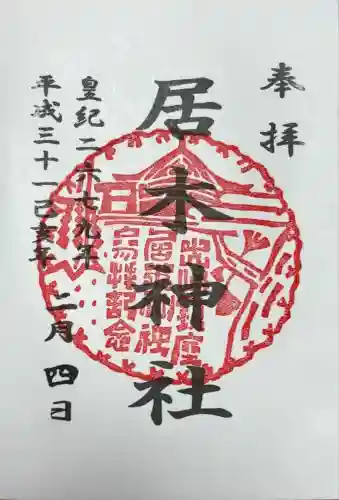 奉拝
居木神社
皇紀二六七九年
平成三十一己亥年 二月四日